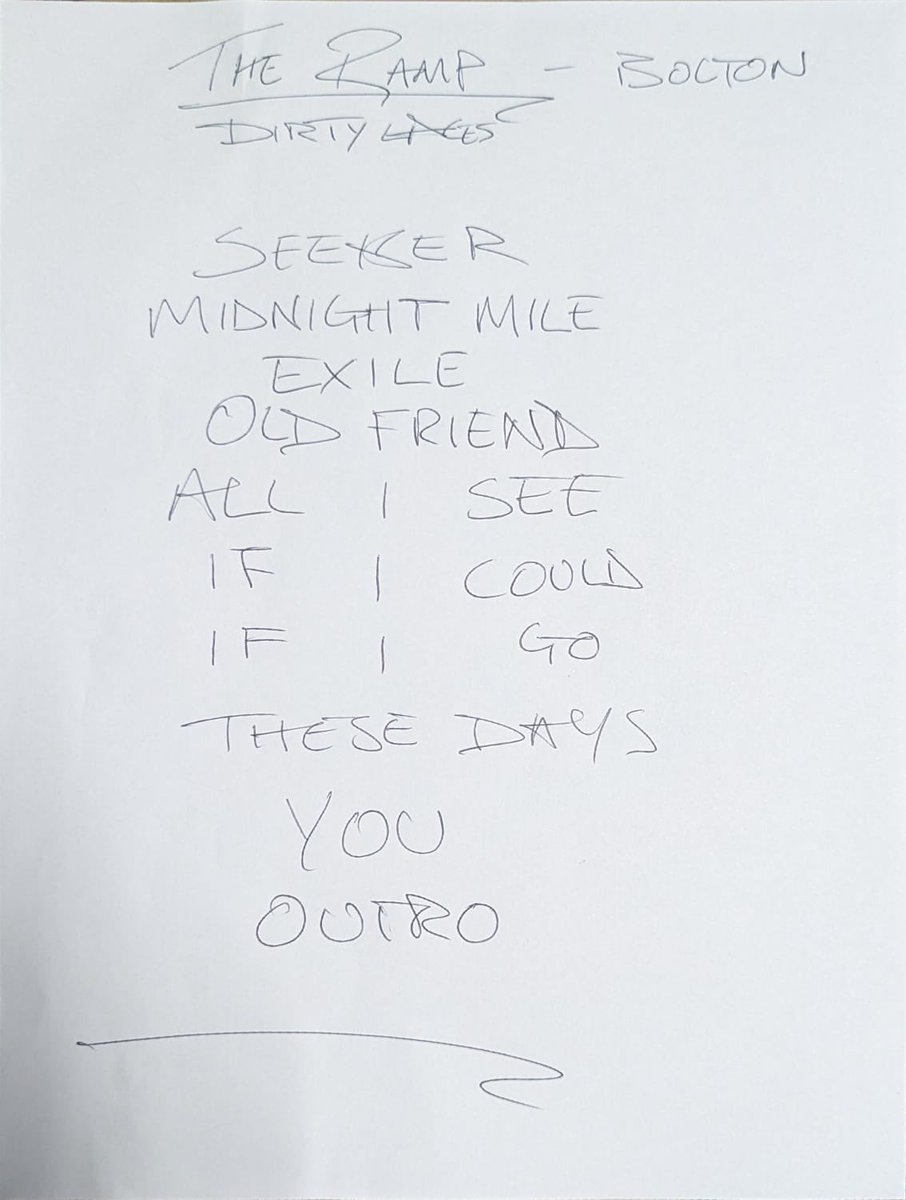 THE RAMP - BOLTON
DIRTY LACES
SEEKER
MIDNIGHT MILE
EXILE
OLD FRIEND
ALL I SEE
IF I COULD
IF I GO
THESE DAYS
YOU
OUTRO